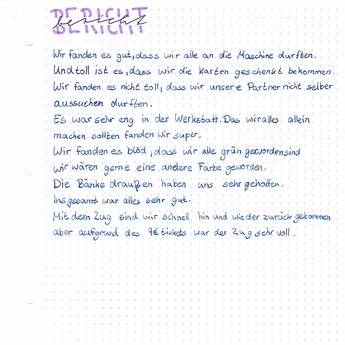 BERICHT
bericht
Wir fanden es gut, dass wir alle an die Maschine durften.
Und toll ist es, dass wir die Karten geschenkt bekommen.
Wir fanden es nicht toll, dass wir unsere Partner nicht selber
aussuchen durften.
Es war sehr eng in der Werkstatt. Das wir alles allein
machen sollten fanden wir super.
Wir fanden es blöd, dass wir alle grün geworden sind
wir wären gerne eine andere Farbe geworden.
Die Bänke draußen haben uns sehr geholfen.
Insgesamt war alles sehr gut.
Mit dem Zug sind wir schnell hin und wieder zurück gekommen
aber aufgrund des 9€ tickets war der Zug sehr voll.